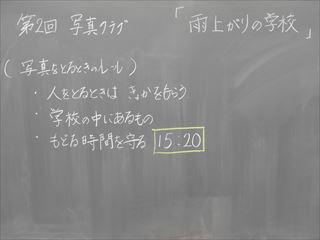 第2回 写真クラブ 「雨上がりの学校」
(写真をとるときのルール)
・人をとるときは きょかをもらう
・学校の中にあるもの
・もどる時間を守る 15:20